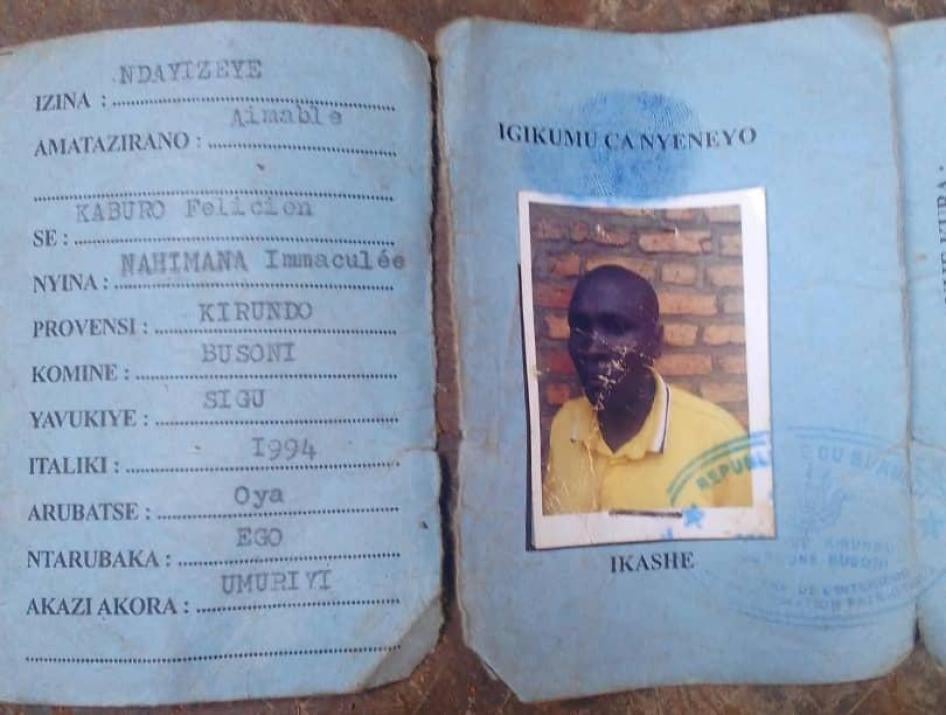 IZINA : NDAYIZEYE
AMATAZIRANO : Aimable
SE : KABURO Felicien
NYINA : NAHIMANA Immaculée
PROVENSI : KIRUNDO
KOMINE : BUSONI
YAVUKIYE : SIGU
ITALIKI : 1994
ARUBATSE : Oya
NTARUBAKA : EGO
AKAZI AKORA : UMURIYI
IGIKUMU CA NYENEYO
REPUBLIQUE DU BURUNDI
BUSONI
IKASHE